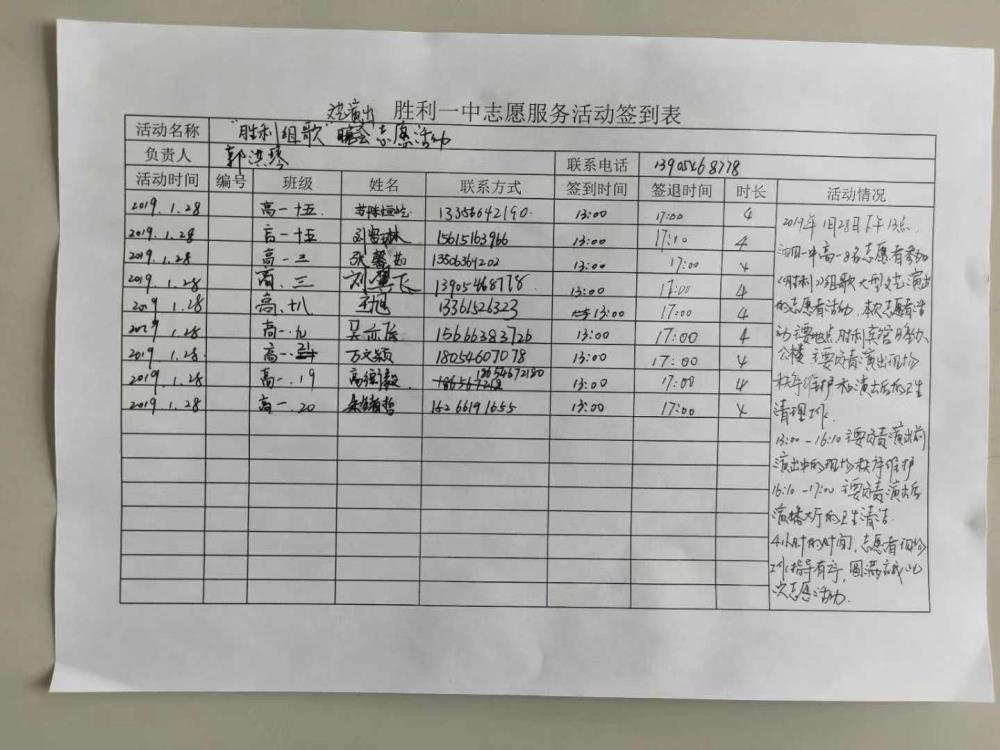 胜利一中志愿服务活动签到表
文艺演出
活动名称 "胜利组歌" 晚会志愿活动
负责人 郭洪琴 联系电话 13905468778
活动时间 编号 班级 姓名 联系方式 签到时间 签退时间 时长 活动情况
2019.1.28 高一十五 13356642190. 13:00 17:00 4
2019.1.28 高一十五 15615163966 13:00 17:10 4
2019.1.28 高一.三 张馨 13505364202 13:00 17:00 4
2019.1.28 高.三 刘鹰飞 13905468778 13:00 17:00 4
2019.1.28 高.十八 王旭 13361526323 13:00 17:00 4
2019.1.28 高一.九 吴亦 15666383726 13:00 17:00 4
2019.1.28 高一. 万文颖 18054607078 13:00 17:00 4
2019.1.28 高一.19 高衡毅 18656672180 13:00 17:00 4
2019.1.28 高一.20 15266191655 13:00 17:00 4
2019年1月28日下午13点.
一中高一8名志愿者参加
《胜利》组歌大型文艺演出
的志愿者活动,本次志愿者活
动主要地点胜利宾馆办
公楼 主要负责演出现场
秩序维护和演出后的卫生
清理工作.
13:00-16:10主要负责演出前
演出中的现场秩序维护
16:10-17:00主要负责演出后
演播大厅的卫生清洁.
4小时的时间,志愿者们
工作指导有序,圆满完成此
次志愿活动.